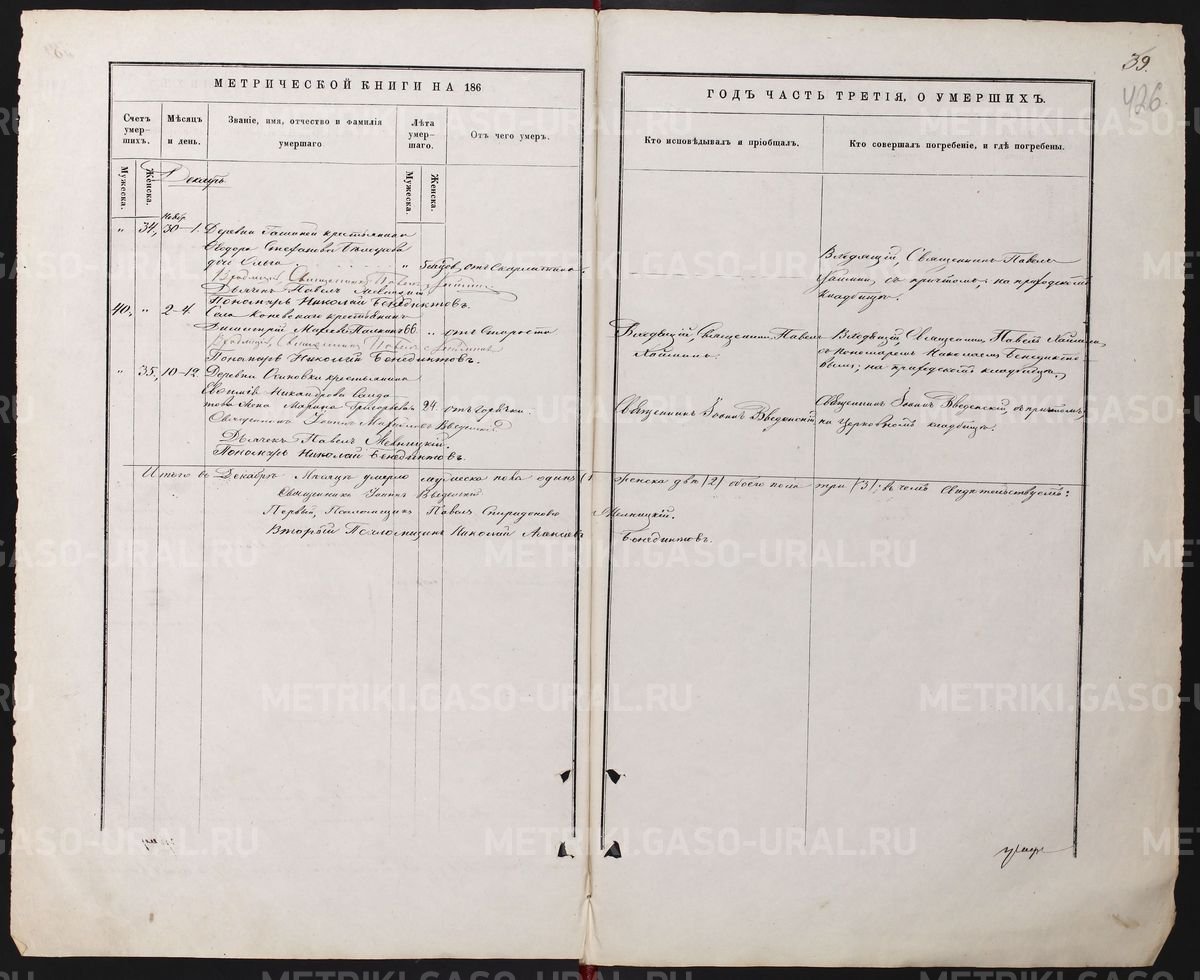 39.
426.
МЕТРИЧЕСКОЙ КНИГИ НА 186
ГОДЪ ЧАСТЬ ТРЕТІЯ, О УМЕРШИХЪ.
Счетъ умер-
шихъ.
Мѣсяцъ
и день.
Званіе, имя, отчество и фамилія
умершаго
Лѣта
умер-
шаго.
Отъ чего умеръ.
Кто исповѣдывалъ и пріобщалъ.
Кто совершалъ погребеніе, и гдѣ погребены.
Мужеска.
Женска.
Мужеска.
Женска.
Декабрь
Нояб.
" 34, 30-1. Деревни крестьянина
Ѳедора Стефанова
дочь Ольга " отъ Скарлатины.
Священникъ Павелъ
Дьячекъ Павелъ Мелницкій
Пономарь Николай Бенедиктовъ.
Священникъ Павелъ
съ причтомъ, на приходскомъ
кладбищѣ.
40, " 2-4. Села Коневскаго крестьянинъ
Димитрій 66 " отъ Старости
Священникъ Павелъ
Пономарь Николай Бенедиктовъ.
Священникъ Павелъ
Священникъ Павелъ
съ пономаремъ Николаемъ Бенедикто-
вымъ; на приходскомъ кладбищѣ.
" 35, 10-12. Деревни Осиновки крестьянина
Евѳимія Никандрова
жена Марина Григорьева 24. отъ горячки.
Священникъ Іоаннъ Введенскій
Дьячекъ Павелъ Мелницкій.
Пономарь Николай Бенедиктовъ.
Священникъ Іоаннъ Введенскій
Священникъ Іоаннъ Введенскій, съ причтомъ,
на церковномъ кладбищѣ.
Итого въ Декабрѣ Мѣсяцѣ умерло мужеска пола одинъ (1 женска двѣ (2) обоего пола три (3); въ чемъ свидѣтельствуемъ:
Священникъ Іоаннъ Введенскій
Первый Псаломщикъ Павелъ Спиридоновъ Мелницкій.
Вторый Псаломщикъ Николай Бенедиктовъ.
METRIKI.GASO-URAL.RU